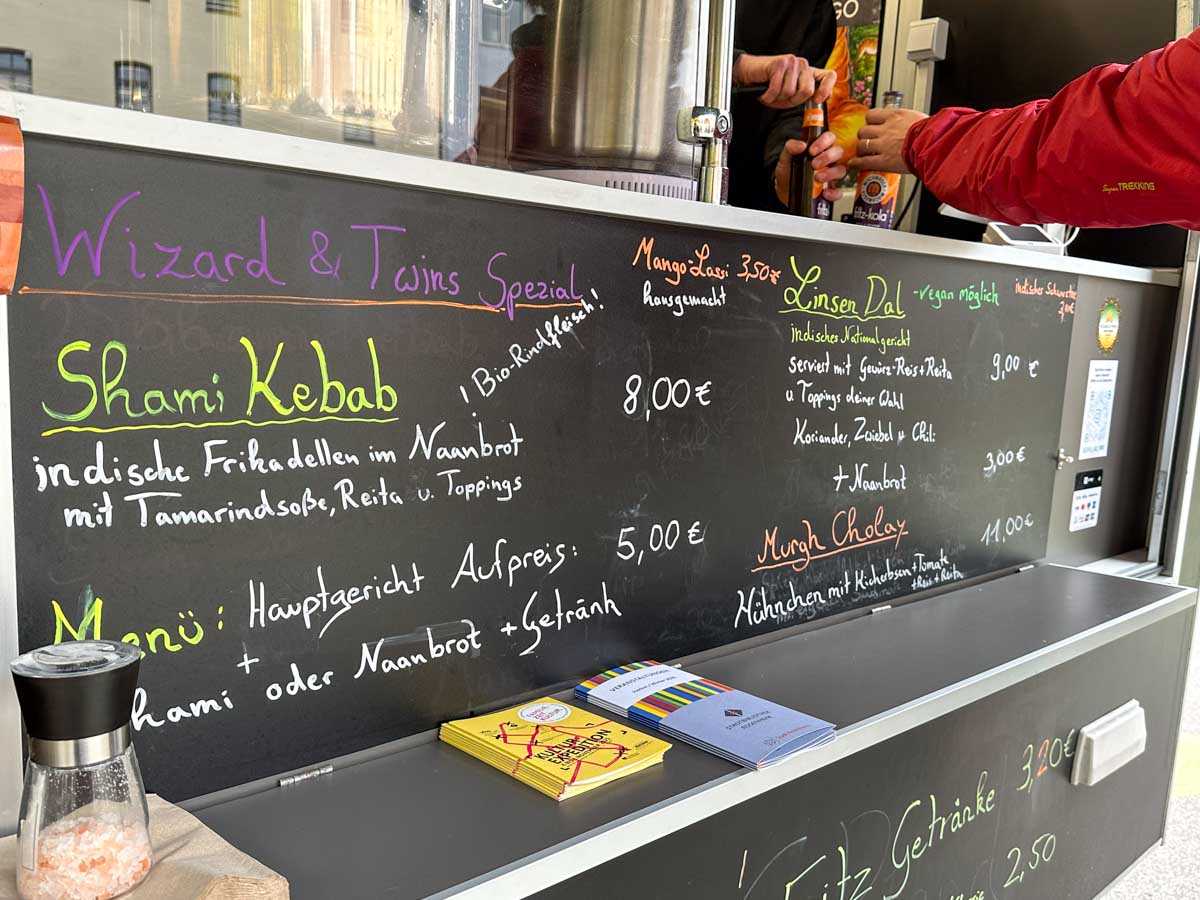 Wizard & Twins Spezial
Shami Kebab
! Bio-Rindfleisch!
8,00 €
indische Frikadellen im Naanbrot
mit Tamarindsoße, Reita u. Toppings
Menü: Hauptgericht Aufpreis: 5,00 €
+
hami oder Naanbrot + Getränk
Mango-Lassi 3,50€
hausgemacht
Linsen Dal -vegan möglich
indisches Nationalgericht
serviert mit Gewürz-Reis + Reita 9,00 €
u. Toppings deiner Wahl
Koriander, Zwiebel
+ Naanbrot 3,00 €
Murgh Cholay 11,00 €
Hähnchen mit Kicherbsen + Tomate
+ Reis + Reita
fritz-kola
TREKKING
KULTUR
EXPEDITION
VERANSTALTUNGEN
STADTBIBLIOTHEK
Fritz Getränke 3,20€
2,50